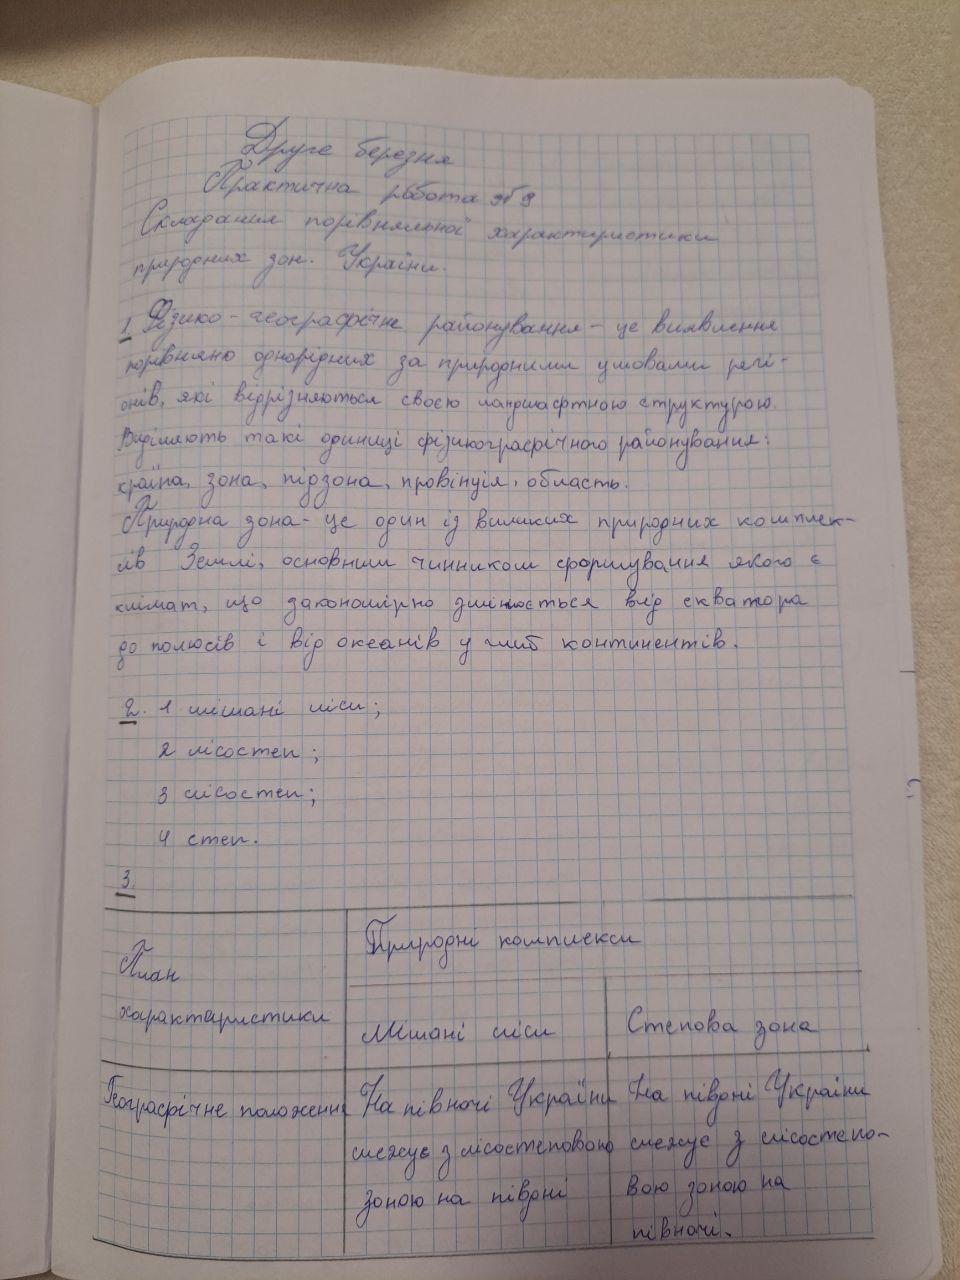 Друге березня
Практична робота №9
Складання порівняльної характеристики
природних зон. України.
1. Фізико-географічне районування - це виявлення
порівняно однорідних за природними умовами регі-
онів, які відрізняються своєю ландшафтною структурою.
Виділяють такі одиниці фізикографічного районування:
країна, зона, підзона, провінція, область.
Природна зона - це один із великих природних комплек-
ів Землі, основним чинником формування якого є
клімат, що закономірно змінюється від екватора
до полюсів і від океанів у глиб континентів.
2. 1 мішані ліси;
2 лісостеп;
3 лісостеп;
4 степ.
3.
План
характеристики
Природні комплекси
Мішані ліси
Степова зона
Географічне положення
На півночі України
межує з лісостеповою
зоною на півдні
На півдні України
межує з лісостепо-
вою зоною на
півночі.